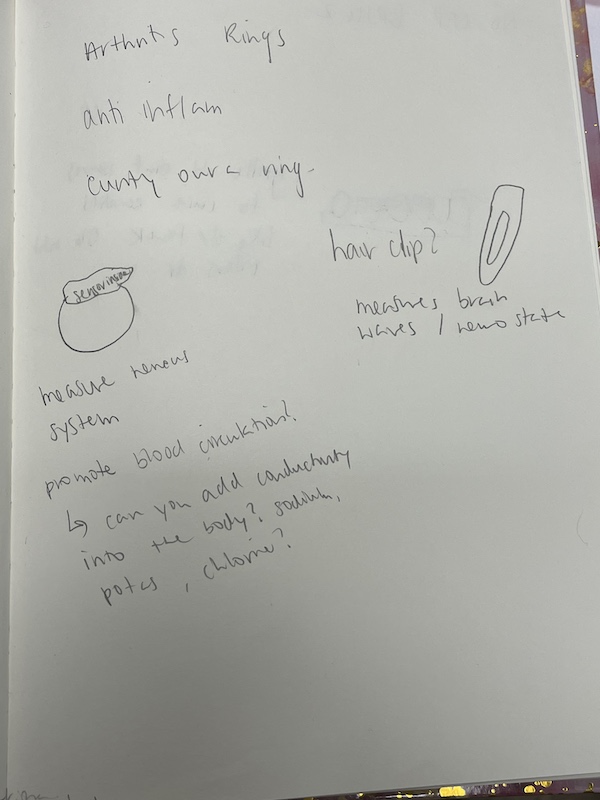 Arthritis Rings
anti inflam
cunty oura ring.
hair clip?
measures brain
waves / neuro state
sensor inside
measure nervous
system
promote blood circulation?
↳ can you add conductivity
into the body? sodium,
potas, chlorine?